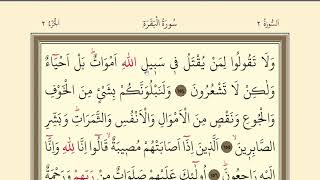 اَلسُّورَةُ ٢ سُورَةُ الْبَقَرَةِ اَلْجُزْءُ ٢
وَلَا تَقُولُوا لِمَنْ يُقْتَلُ فٖي سَبٖيلِ اللّٰهِ اَمْوَاتٌؕ بَلْ اَحْيَٓاءٌ
وَلٰكِنْ لَا تَشْعُرُونَ ﴿١٥٤﴾ وَلَنَبْلُوَنَّكُمْ بِشَيْءٍ مِنَ الْخَوْفِ
وَالْجُوعِ وَنَقْصٍ مِنَ الْاَمْوَالِ وَالْاَنْفُسِ وَالثَّمَرَاتِؕ وَبَشِّرِ
الصَّابِرٖينَۙ ﴿١٥٥﴾ اَلَّذٖينَ اِذَٓا اَصَابَتْهُمْ مُصٖيبَةٌۙ قَالُٓوا اِنَّا لِلّٰهِ وَاِنَّٓا
اِلَيْهِ رَاجِعُونَؕ ﴿١٥٦﴾ اُولٰٓئِكَ عَلَيْهِمْ صَلَوَاتٌ مِنْ رَبِّهِمْ وَرَحْمَةٌ